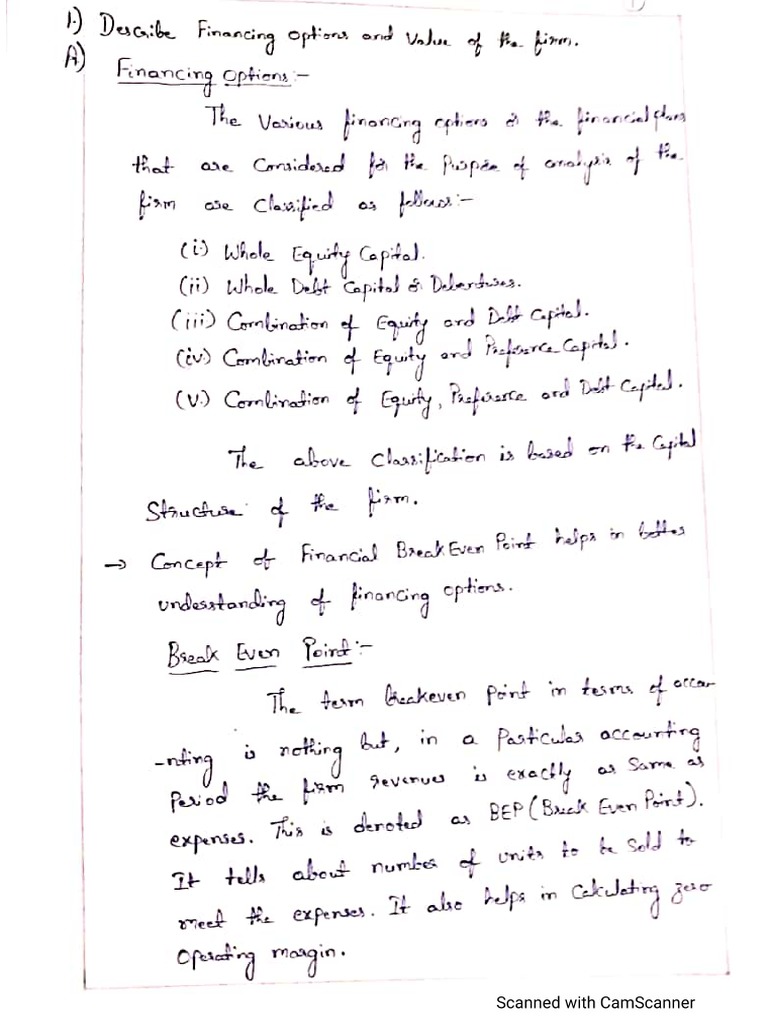 1.) Describe Financing options and Value of the firm.
A) Financing Options:-
The Various financing options or the financial plans
that are Considered for the Purpose of analysis of the
firm are Classified as follows:-
(i) Whole Equity Capital.
(ii) Whole Debt Capital or Debentures.
(iii) Combination of Equity and Debt Capital.
(iv) Combination of Equity and Preference Capital.
(v.) Combination of Equity, Preference and Debt Capital.
The above Classification is based on the Capital
Structure of the firm.
→ Concept of Financial Break Even Point helps in better
understanding of financing options.
Break Even Point:-
The term breakeven point in terms of accou-
-nting is nothing but, in a Particular accounting
Period the firm revenues is exactly as Same as
expenses. This is denoted as BEP (Break Even Point).
It tells about number of units to be Sold to
meet the expenses. It also helps in Calculating zero
Operating margin.
Scanned with CamScanner